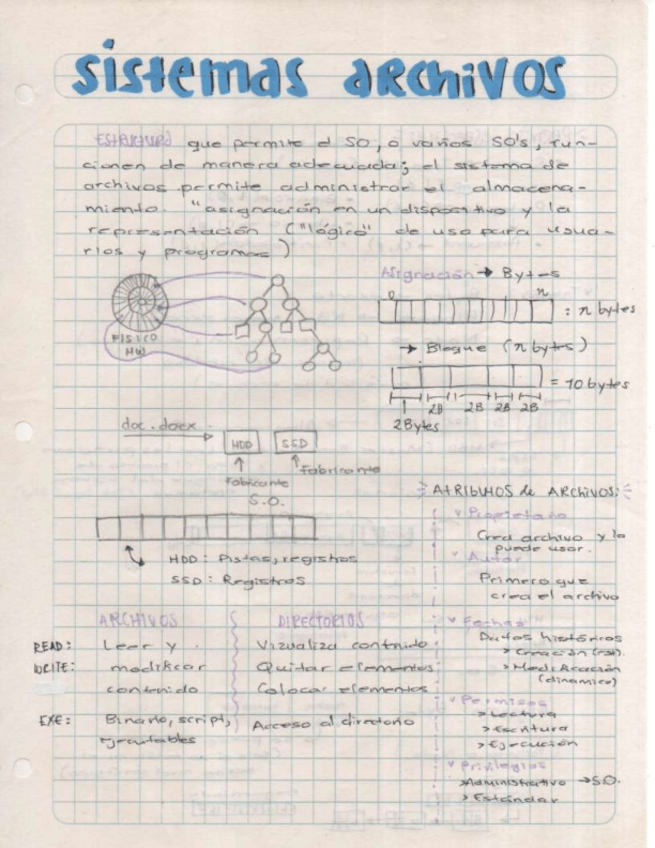 sistemas ARchiVOS
ESTRUCTURA que permite el SO, o varios SO's, fun-
cionen de manera adecuada; el sistema de
archivos permite administrar el almacena-
miento. "asignación en un dispositivo y la
representación ("lógica" de uso para usua-
rios y programas)
FISICO
HW
Asignación → Bytes
0 n
: n bytes
→ Bloque (n bytes)
= 10 bytes
2B 2B 2B 2B
2Bytes
doc.docx
HDD SSD
Fabricante Fabricante
S.O.
HDD: Pistas, registros
SSD: Registros
ARCHIVOS DIRECTORIOS
READ: Leer y Visualiza contenido
WRITE: modificar Quitar elementos
contenido Colocar elementos
EXE: Binario, script, Acceso al directorio
ejecutables
ATRIBUTOS de ARCHIVOS:
Propietario
Crea archivo y lo
puede usar.
Autor
Primero que
crea el archivo
Fechas
Datos históricos
> Creación
> Modificación
(dinamico)
Permisos
> Lectura
> Escritura
> Ejecución
Privilegios
> Administrativo → S.O.
> Estándar